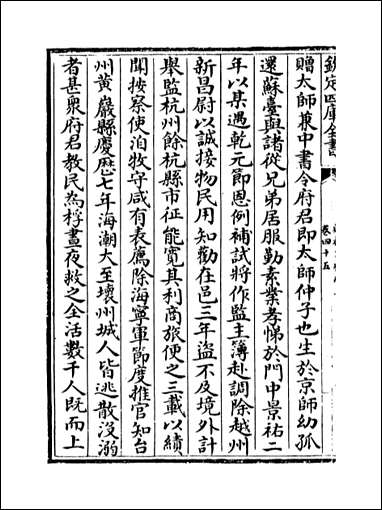 欽定四庫全書
卷四十五
贈太師兼中書令府君即太師仲子也生於京師幼孤
還蘇臺與諸從兄弟居服勤素業孝悌於門中景祐二
年以集遇乾元節恩例補試將作監主簿赴調除越州
新昌尉以誠接物民用知勸在邑三年盜不及境外計
舉監杭州餘杭縣市征能寬其利商旅便之三載以績
聞按察使洎牧守咸有表薦除海寧軍節度推官知台
州黃巖縣慶歷七年海潮大至壞州城人皆逃散沒溺
者甚衆府君教民為桴晝夜救之全活數千人既而上